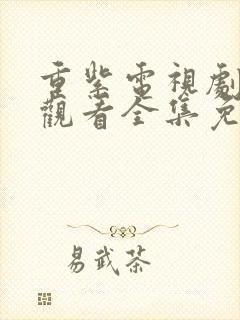 重紫電視劇
觀看全集免
易武茶